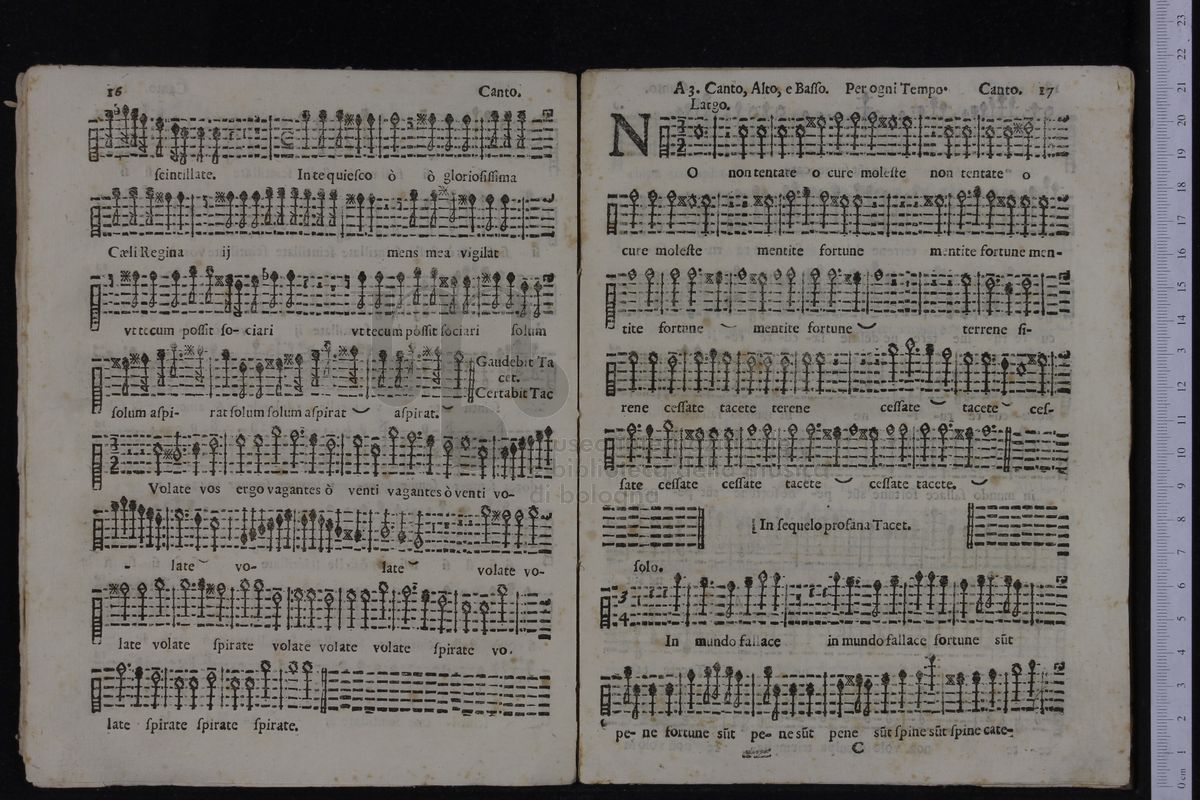 16 Canto.
scintillate. In te quiesco ò ò gloriosissima
Cæli Regina ij mens mea vigilat
vt tecum possit so- ciari vt tecum possit sociari solum
Gaudebit Ta
cet.
Certabit Tac
solum aspi- rat solum solum aspirat aspirat.
3
2
Volate vos ergo vagantes ò venti vagantes ò venti vo-
- late vo- late volate vo-
late volate spirate volate volate volate spirate vo.
late spirate spirate spirate.
A 3. Canto, Alto, e Basso. Per ogni Tempo. Canto. 17
Largo.
N
3
2
O non tentate o cure moleste non tentate o
cure moleste mentite fortune mentite fortune men-
tite fortune mentite fortune terrene si-
rene cessate tacete terene cessate tacete ces-
sate cessate cessate tacete cessate tacete.
In sequelo profana Tacet.
solo.
3
4
In mundo fallace in mundo fallace fortune sūt
pe- ne fortune sūt pe- ne sūt pene sūt spine sūt spine cate-
C
museo
biblioteca della musica
di bologna
0 cm 1 2 3 4 5 6 7 8 9 10 11 12 13 14 15 16 17 18 19 20 21 22 23